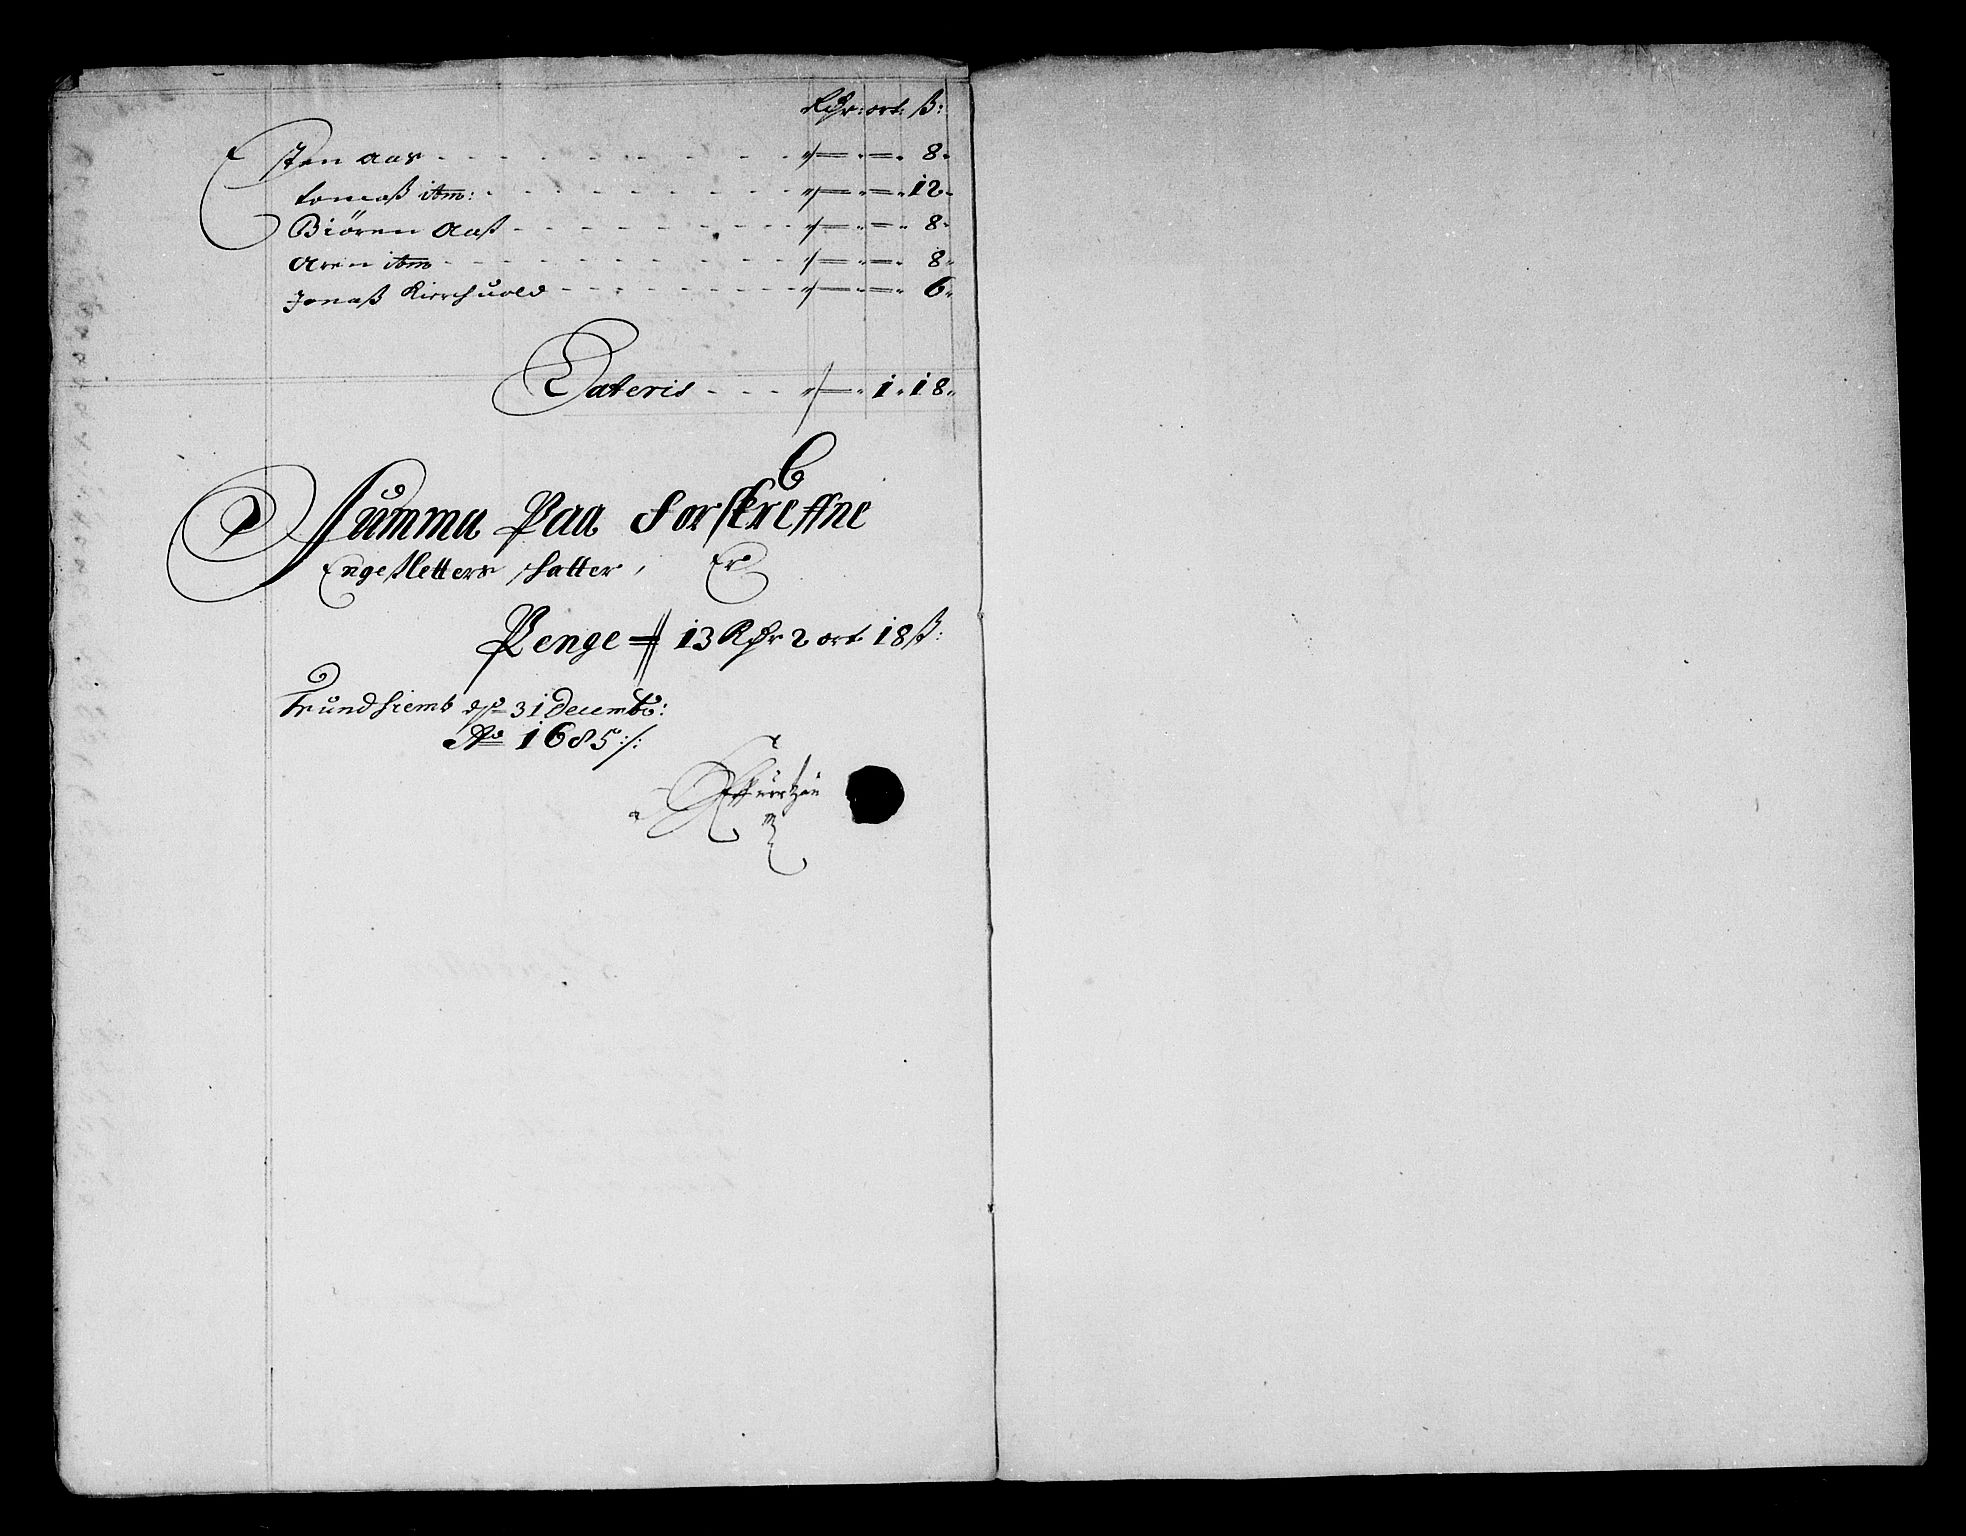 Rdr: ort: ß:
Esten Aas - - - - - - - - - - 8
tomaß itm: - - - - - - - - - 12
Biören Aaß - - - - - - - - - 8
Aren itm - - - - - - - - - - 8
Jonaß Kirchuold - - - - - - - 6
Lateris - - - 1 18
Summa Paa Forskreffne
Engesletters schatter, Er
Penge 13 Rdr 2 ort 18 ß:
Trundhiemb d 31 Decemb:
Ao 1685 :/: